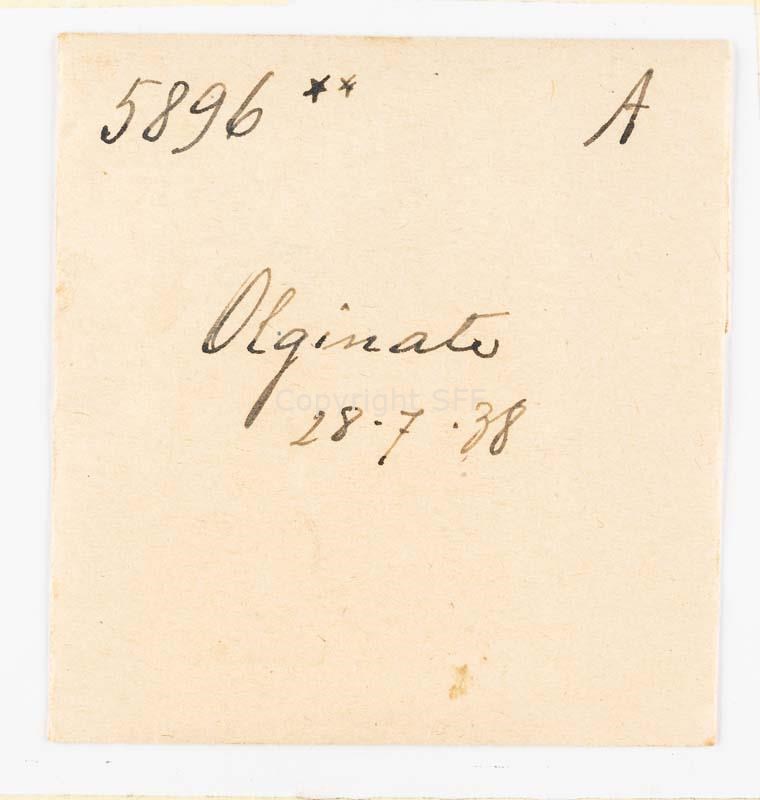 5896 ** A
Olginate
Copyright SFF
28·7·38